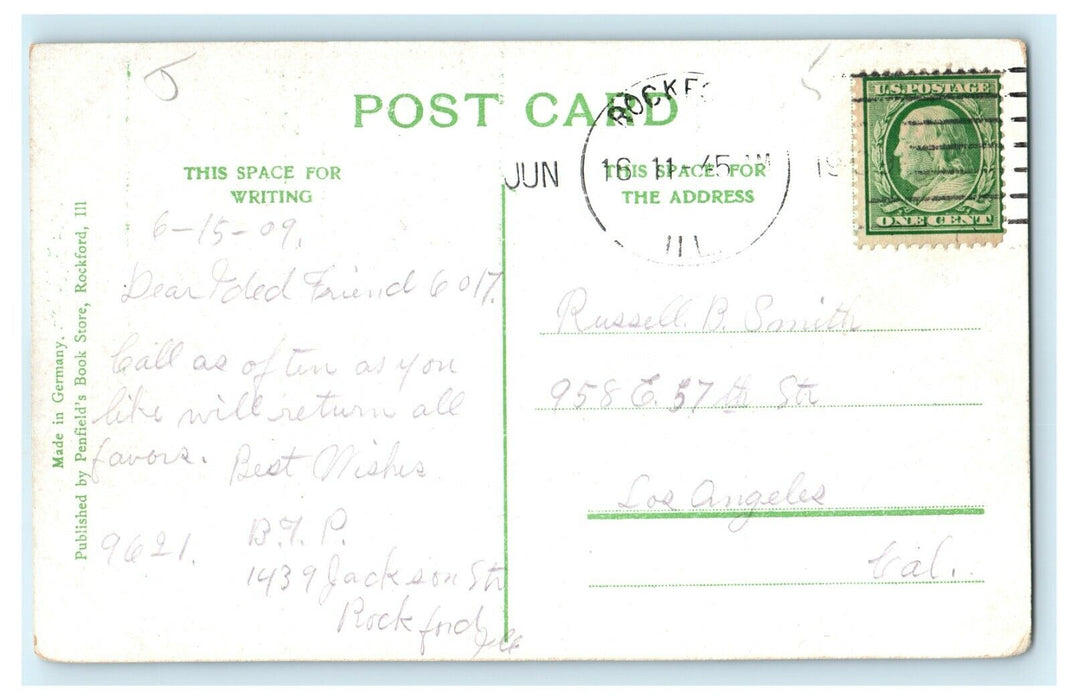 POST CARD
THIS SPACE FOR
WRITING
THIS SPACE FOR
THE ADDRESS
ROCKF
JUN 16 11-45 AM 19
ILL
U.S. POSTAGE
ONE CENT
Made in Germany.
Published by Penfield's Book Store, Rockford, Ill
6-15-09.
Dear Friend 6017.
Call as often as you
like will return all
favors. Best Wishes
9621. B.F.P.
1439 Jackson Str
Rockford Ill
Russell. B. Smith
958 E. 57th Str
Los Angeles
Cal.